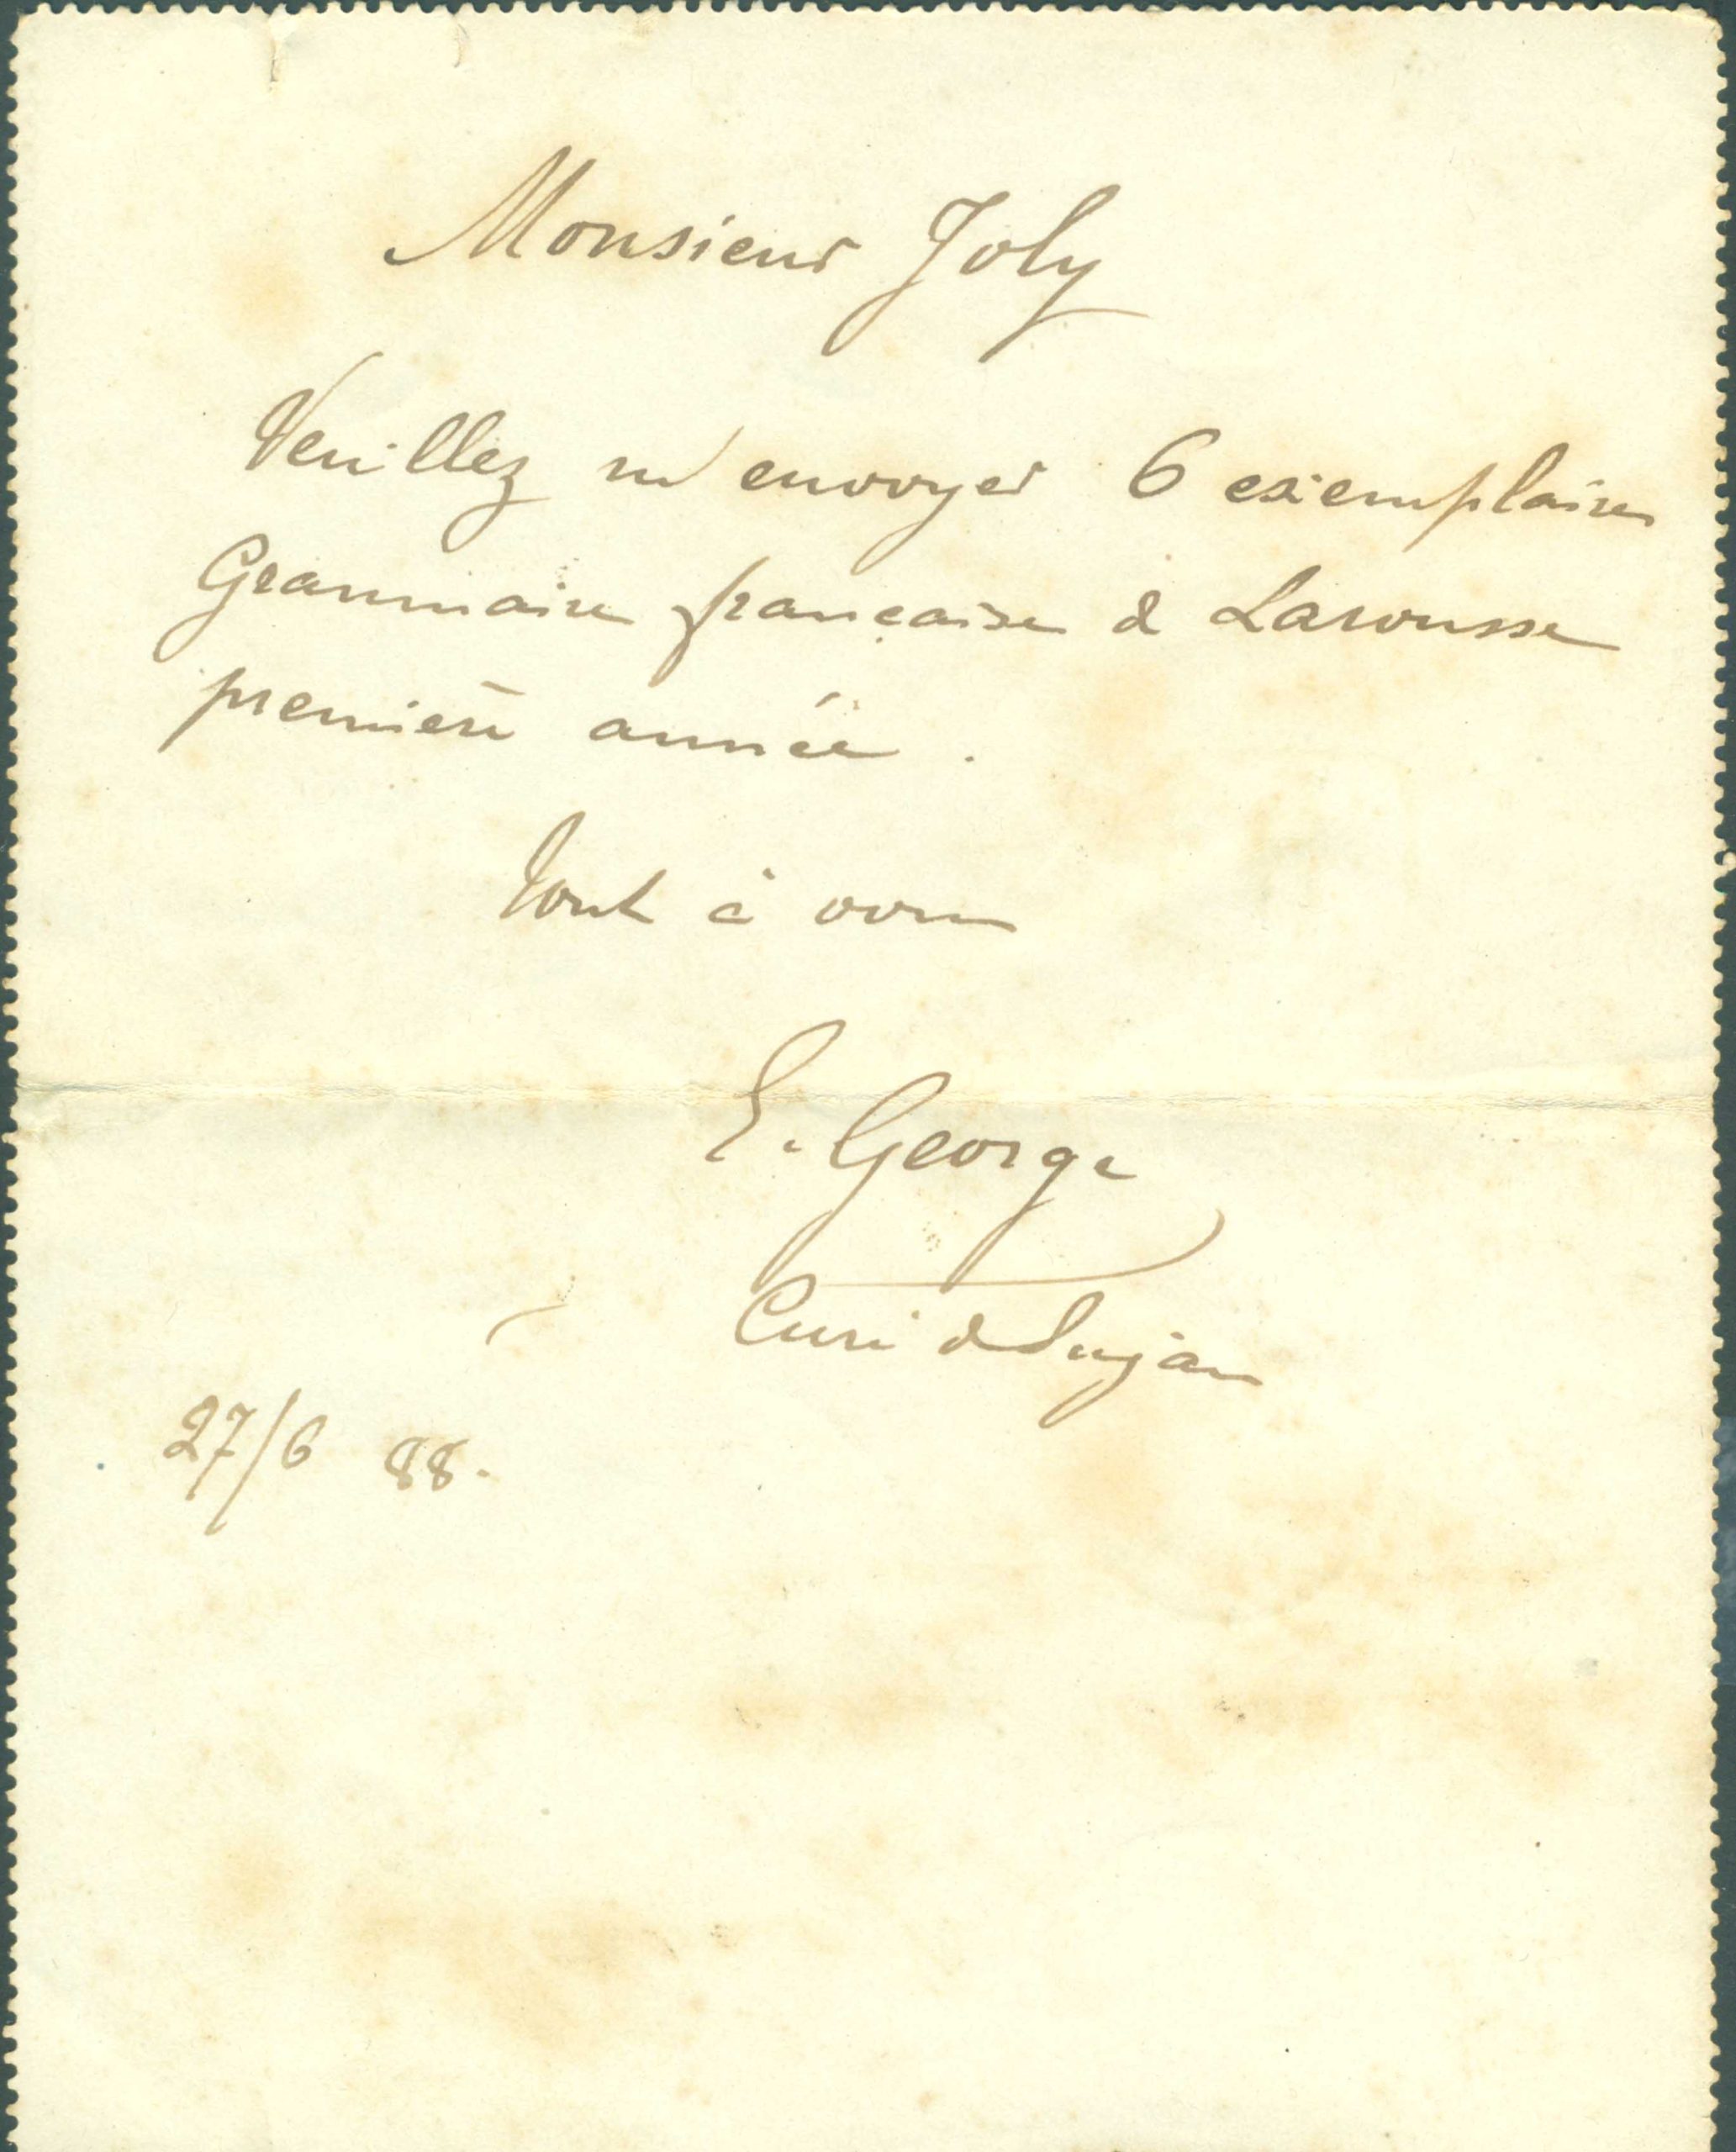 Monsieur Joly
Veuillez m'envoyer 6 exemplaires
Grammaire française de Larousse
première année.
Tout à vous
E. George
Curé de Lujan
27/6 88.